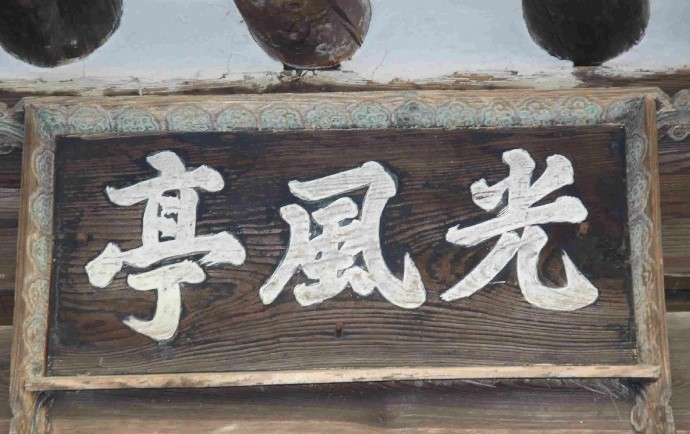 光風亭